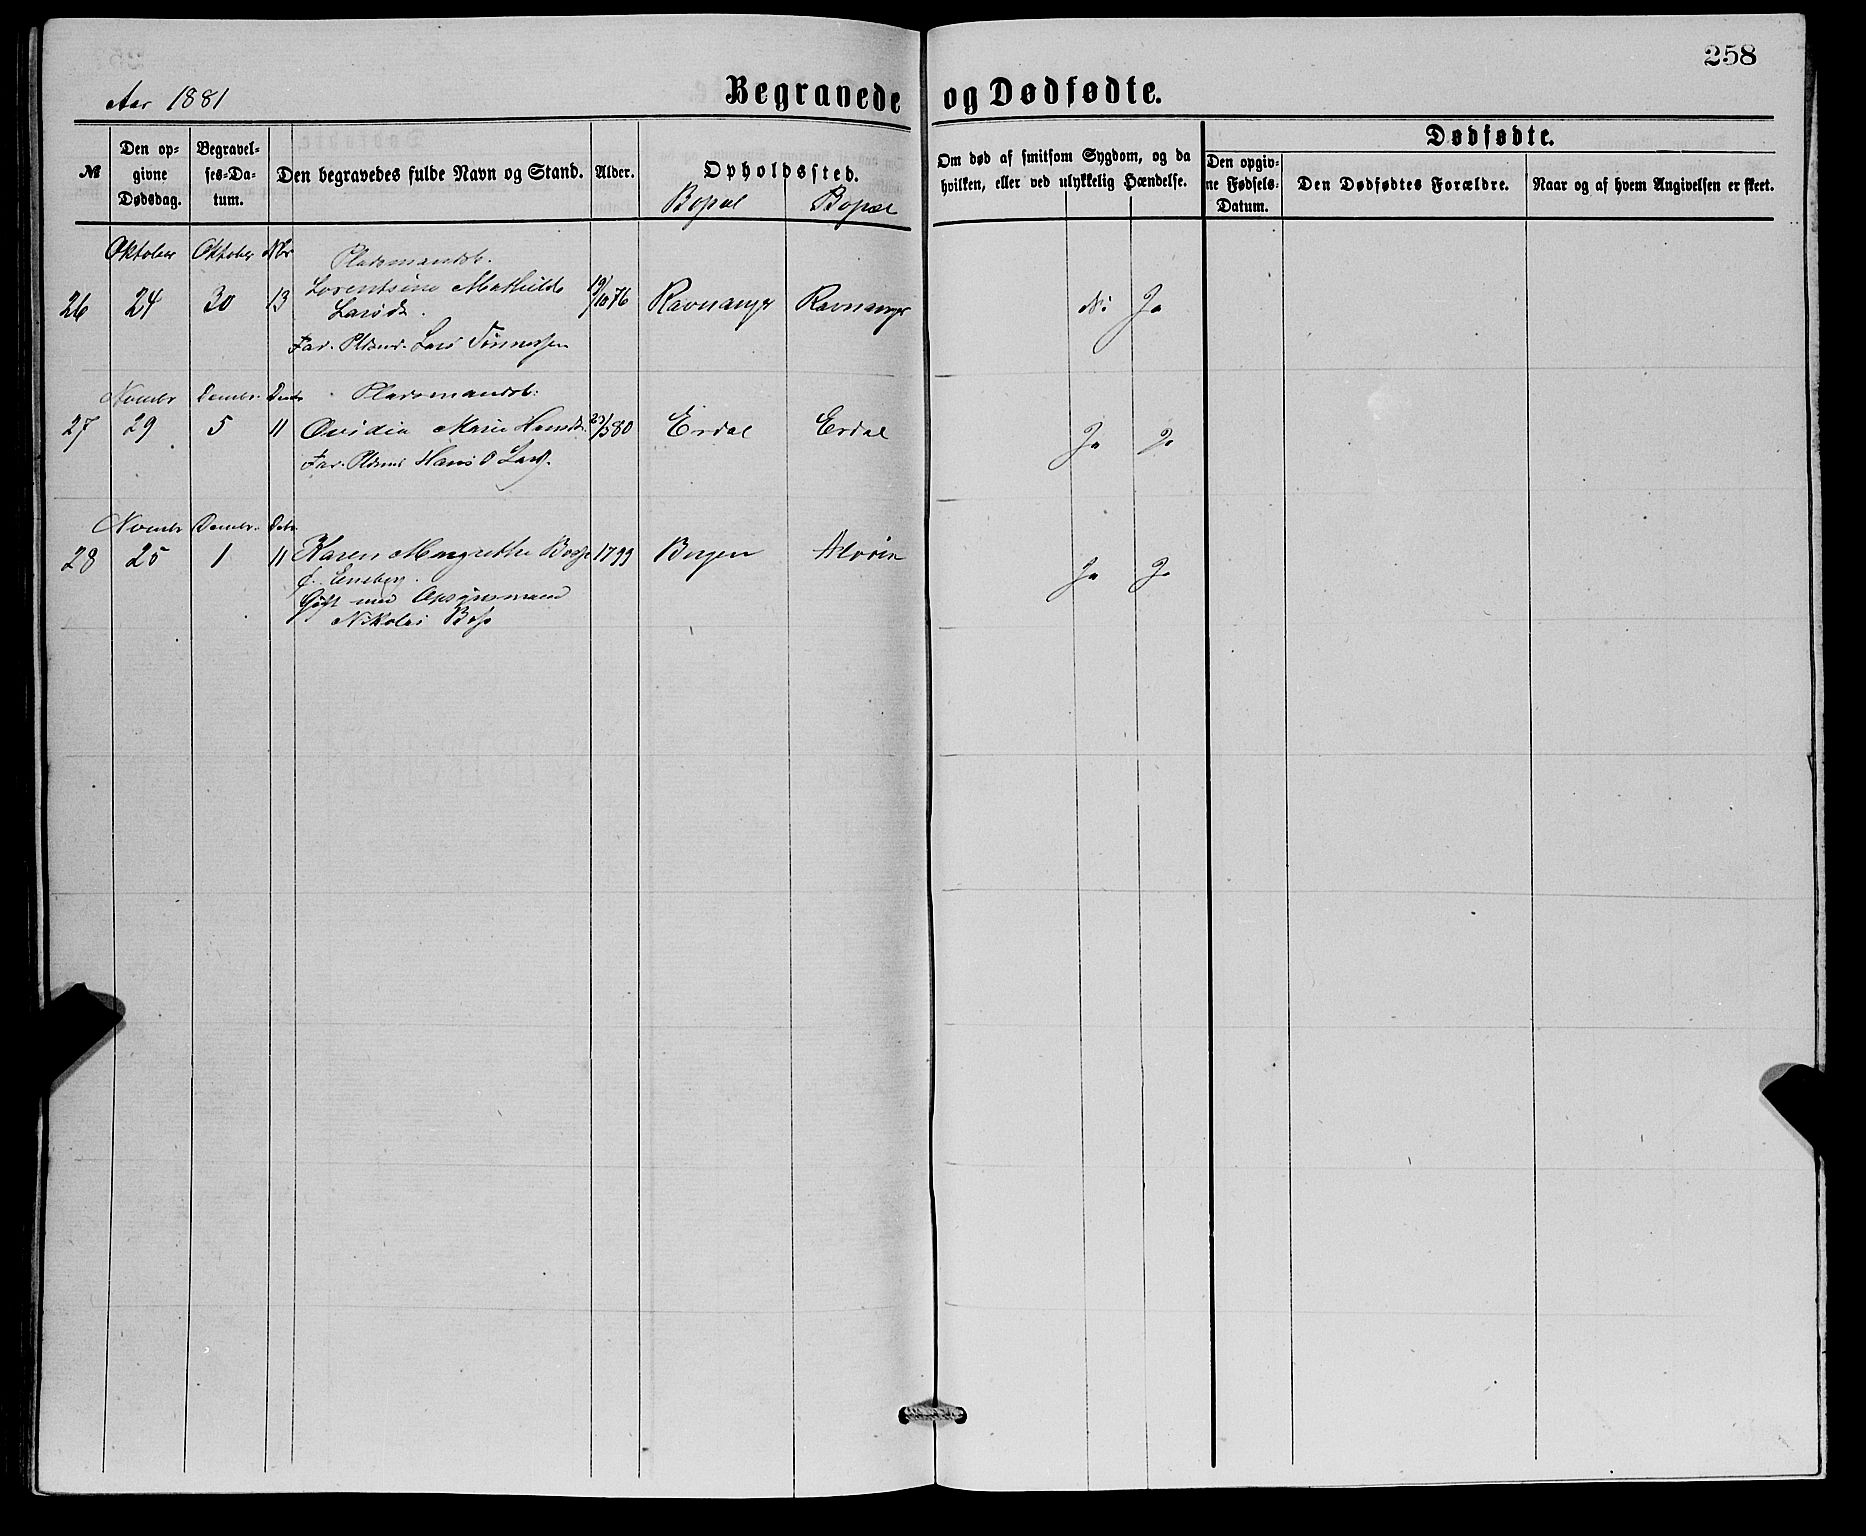 258
Aar 1881
Begravede og Dødfødte.
№
Den opgivne Dødsdag.
Begravelses-Datum.
Den begravedes fulde Navn og Stand.
Alder.
Opholdssted.
Om død af smitsom Sygdom, og da
hvilken, eller ved ulykkelig Hændelse.
Dødfødte.
Den opgivne Fødsels-Datum.
Den Dødfødtes Forældre.
Naar og af hvem Angivelsen er skeet.
Bopæl Bopæl
Oktober Oktober Nbr Pladsmandsb.
26 24 30 13 Lorentsine Mathilde 19/10 76 Ravnanger Ravnanger Ni Ja
Larsdt.
Far. Pldsmd. Lars Tønnessen
Novembr Dembr. Debr Pladsmandsb:
27 29 5 11 Ovidia Marie Hansdt. 23/5 80 Erdal Erdal Ja Ja
Far. Pldsmd Hans O Lars.
Novembr Dembr. Debr
28 25 1 11 Karen Margrethe Boss 1799 Bergen Alvøen Ja Ja
f. Eneberg.
Gift med Opsynsmand
Nikolai Boss